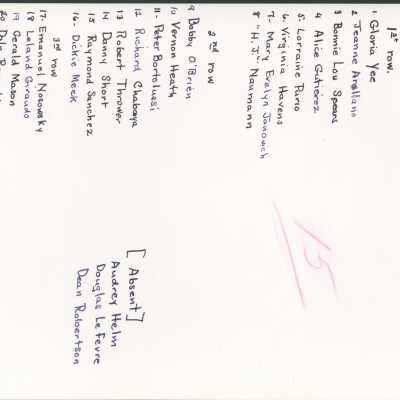 1st row.
1 Gloria Yee
2 Jeanne Arellano
3 Bonnie Lou Spears
4 Alice Gutierez
5. Lorraine Purio
6. Virginia Havens
7. Mary Evelyn Janovich
8 "H.J." Naumann
2nd row
9 Bobby O'Brien
10 Vernon Heath
11. Peter Bortolussi
12 Richard Chabaya
13 Robert Thrower
14 Danny Short
15 Raymond Sanchez
16. Dickie Meek
3rd row
17. Emanuel Nosowsky
18 Leland Giraudo
19 Gerald Mason
20 Dale
[Absent]
Audrey Helm
Douglas LeFevre
Dean Robertson
15